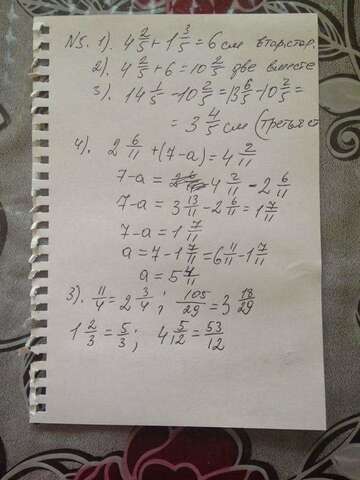 №5. 1). 4 2/5 + 1 3/5 = 6 см втор.стор.
2). 4 2/5 + 6 = 10 2/5 две вместе
3). 14 1/5 - 10 2/5 = 13 6/5 - 10 2/5 =
= 3 4/5 см (третья ст
4). 2 6/11 + (7-a) = 4 2/11
7-a = 4 2/11 - 2 6/11
7-a = 3 13/11 - 2 6/11 = 1 7/11
7-a = 1 7/11
a = 7 - 1 7/11 = 6 11/11 - 1 7/11
a = 5 4/11
3). 11/4 = 2 3/4; 105/29 = 3 18/29
1 2/3 = 5/3; 4 5/12 = 53/12